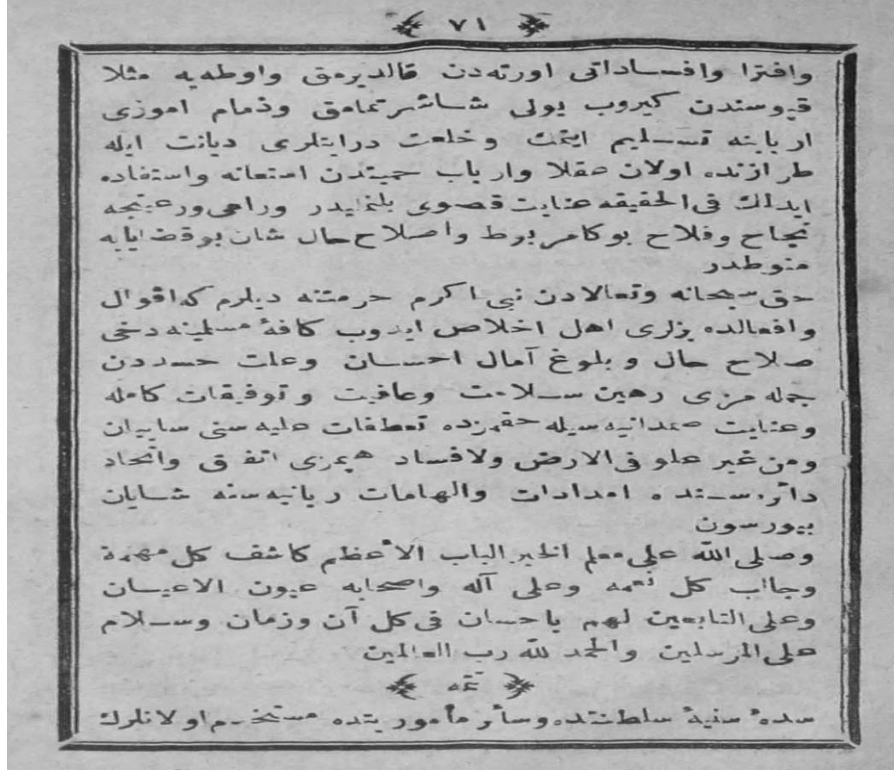 ﴿ ٧١ ﴾
وافترا وافساداتی اورته‌دن قالدیرمق واوطه‌یه مثلا
قپوسندن کیروب یولی شاشرتمامق وذمام اموزی
اربابنه تسلیم ایتمك وخلعت درایتلری دیانت ایله
طرازنده اولان عقلا وارباب حمیتدن استعانه واستفاده
ایدلك فی الحقیقه عنایت قصوی بلنمایدر وراعی ورعیتجه
نجاح وفلاح بوکا مربوط واصلاح حال شان بوقضایایه
منوطدر
حق سبحانه وتعالادن نبی اکرم حرمتنه دیلرم که اقوال
وافعالده بزلری اهل اخلاص ایدوب کافۀ مسلمینه دخی
صلاح حال وبلوغ آمال احسان وعلت حسددن
جمله مزی رهین سلامت وعافیت وتوفیقات کامله
وعنایت صمدانیه سیله حقمزده تعطفات علیه سنی سایبان
ومن غیر علو فی الارض ولافساد هپمزی اتفاق واتحاد
دائره سنده امدادات والهامات ربانیه سنه شایان
بیورسون
وصلی الله علی معلم الخیر الباب الأعظم کاشف کل مهمة
وجالب کل نعمه وعلی آله واصحابه عیون الاعیان
وعلی التابعین لهم باحسان فی کل آن وزمان وسلام
علی المرسلین والحمد لله رب العالمین
﴿ تتمه ﴾
سدۀ سنیۀ سلطنتده وسائر مأموریتده مستخدم اولانلرك